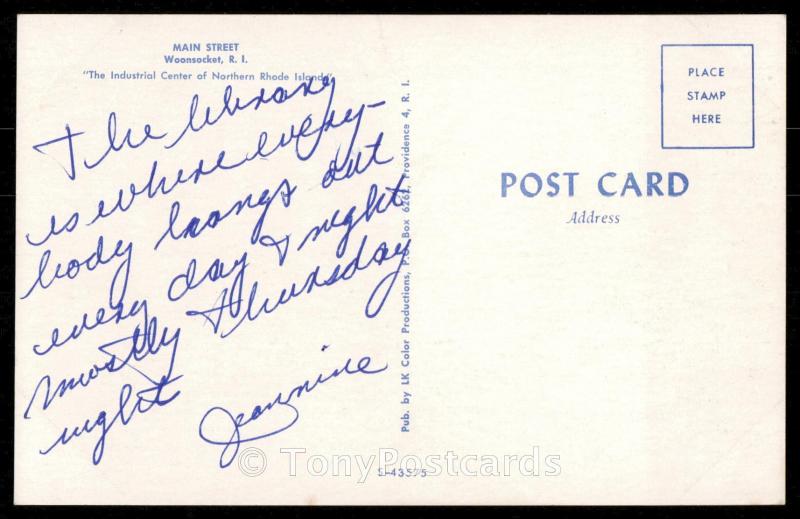 MAIN STREET
Woonsocket, R. I.
"The Industrial Center of Northern Rhode Island"
The library
is where every-
body hangs out
every day & night
mostly Thursday
night
Jeannine
Pub. by LK Color Productions, P.O. Box 6262, Providence 4, R. I.
S-43575
PLACE
STAMP
HERE
POST CARD
Address
© TonyPostcards